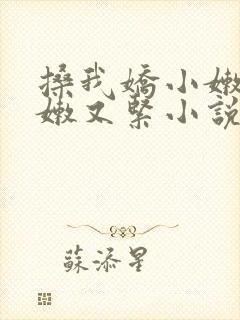 搡我嬌小嫩
嫩又緊小說
蘇添星